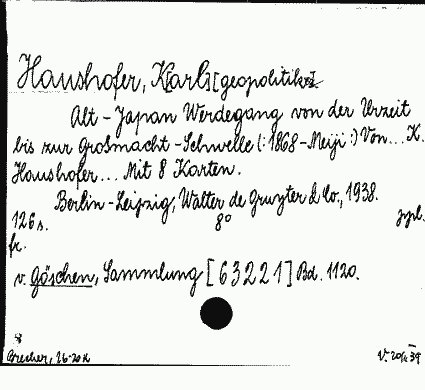 Haushofer, Karl [geopolitikus]
Alt-Japan Werdegang von der Urzeit
bis zur Großmacht-Schwelle (:1868-Meiji:) Von... K.
Haushofer... Mit 8 Karten.
Berlin-Leipzig, Walter de Gruyter & Co., 1938.
126 s. 8°
fr.
v. Göschen, Sammlung [63221] Bd. 1120.
8